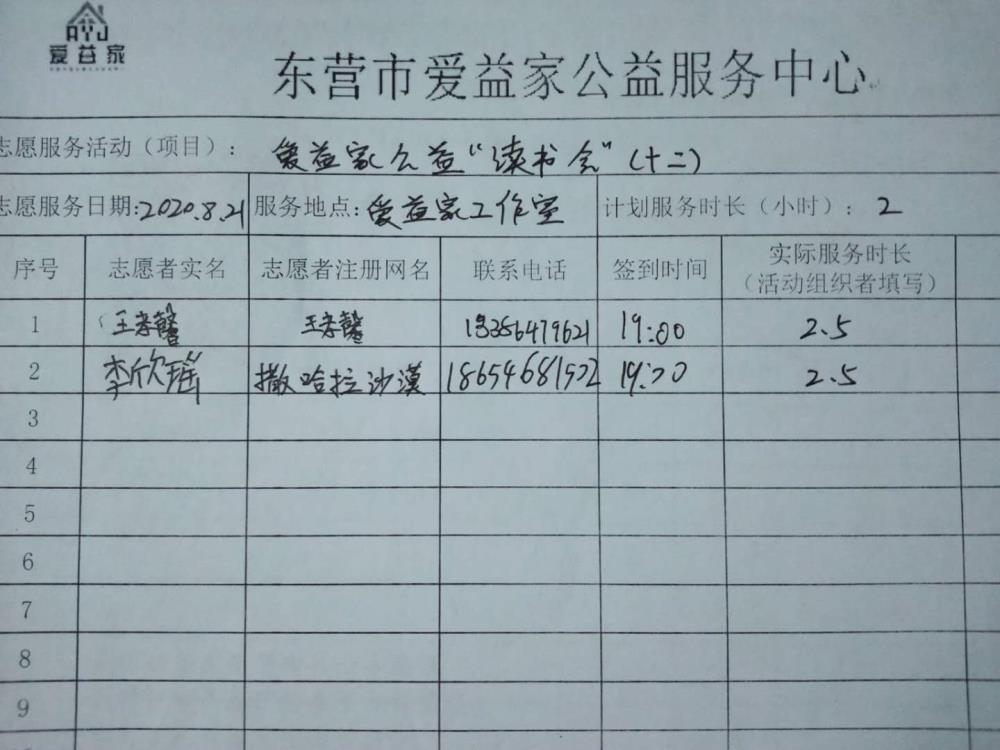 AYJ
爱益家
东营市爱益家公益服务中心
志愿服务活动（项目）： 爱益家公益“读书会”（十二）
志愿服务日期:2020.8.21 服务地点: 爱益家工作室 计划服务时长（小时）： 2
序号 志愿者实名 志愿者注册网名 联系电话 签到时间 实际服务时长
（活动组织者填写）
1 王孝馨 王孝馨 13356479621 19:00 2.5
2 李欣瑶 撒哈拉沙漠 18654681502 19:20 2.5
3
4
5
6
7
8
9